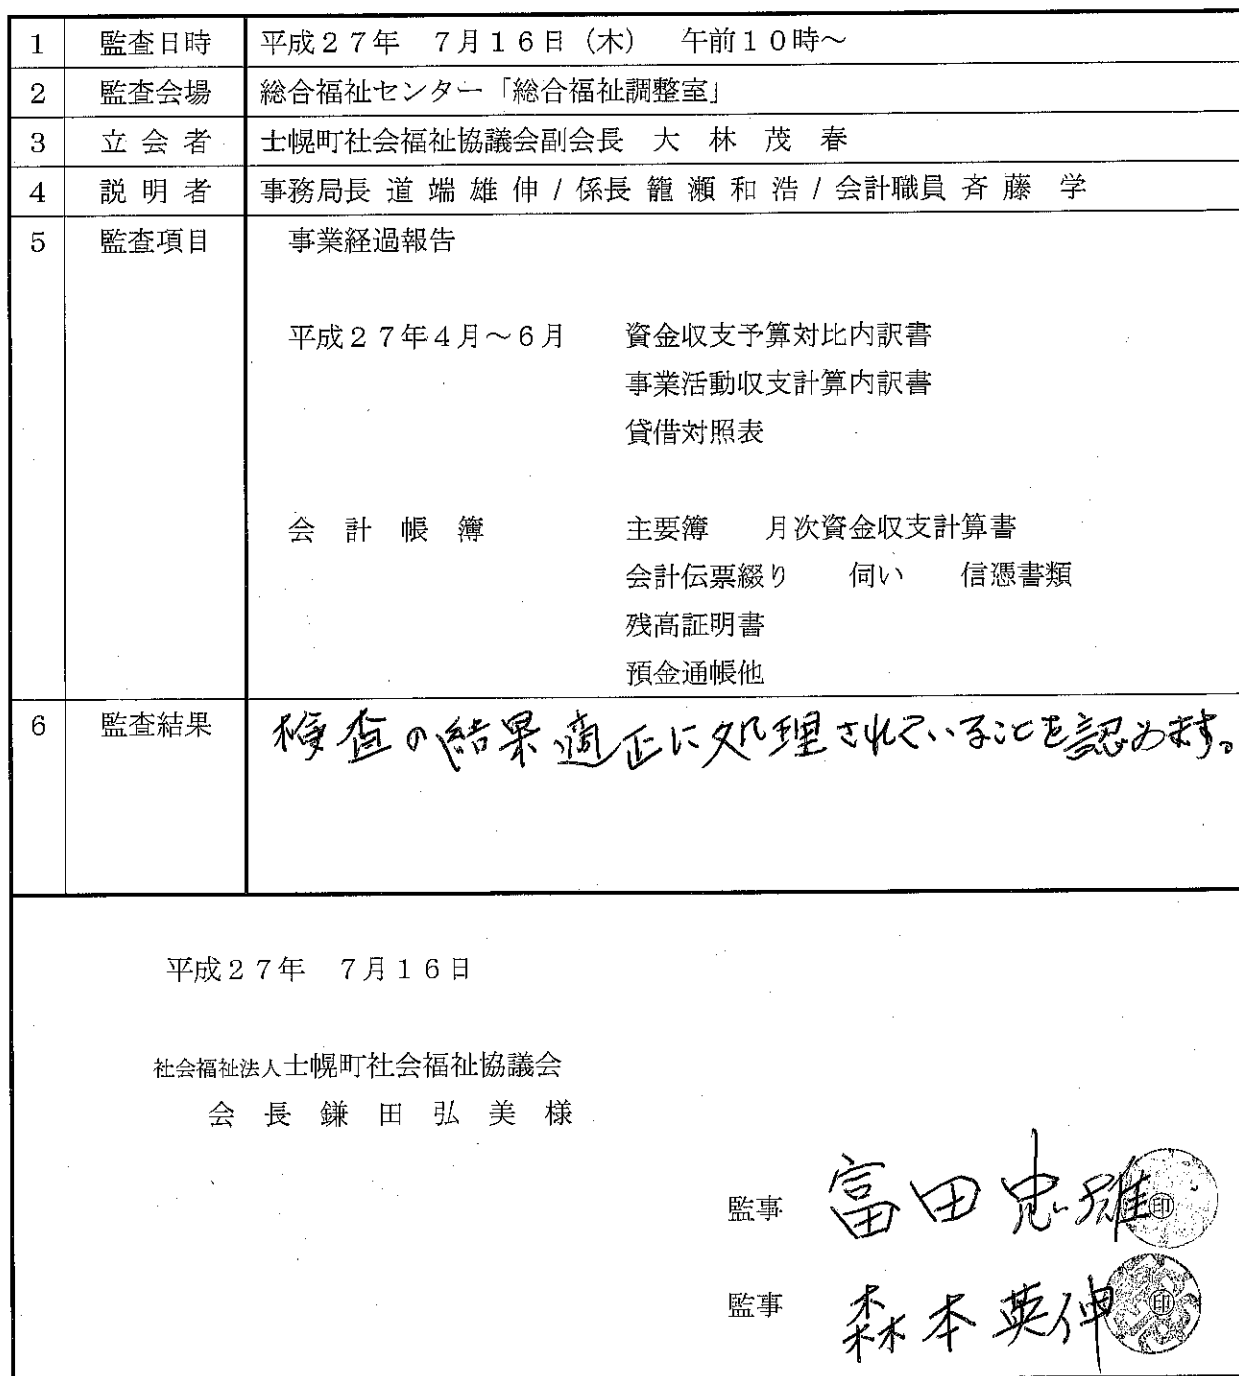 1 監査日時 平成27年 7月16日（木） 午前10時～
2 監査会場 総合福祉センター「総合福祉調整室」
3 立会者 士幌町社会福祉協議会副会長 大林茂春
4 説明者 事務局長 道端雄伸 / 係長 籠瀬和浩 / 会計職員 斉藤 学
5 監査項目 事業経過報告
平成27年4月～6月 資金収支予算対比内訳書
事業活動収支計算内訳書
貸借対照表
会計帳簿 主要簿 月次資金収支計算書
会計伝票綴り 伺い 信憑書類
残高証明書
預金通帳他
6 監査結果 検査の結果適正に処理されていることを認めます。
平成27年 7月16日
社会福祉法人士幌町社会福祉協議会
会長鎌田弘美様
監事 富田忠雄 ㊞
監事 森本英伸 ㊞